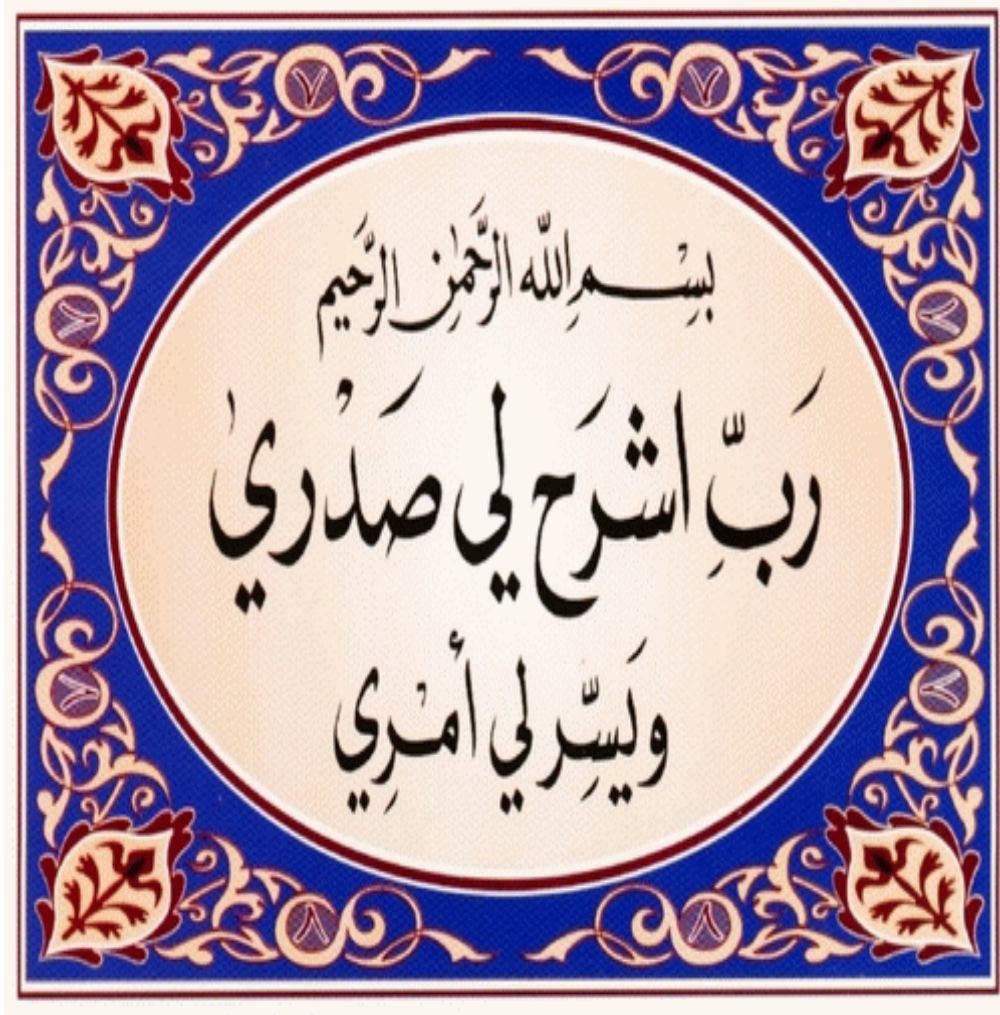 بِسْمِ اللّه الرَّحْمٰنِ الرَّحيم
رَبِّ اشْرَح لي صَدْري
ويَسِّر لي أمْرِي